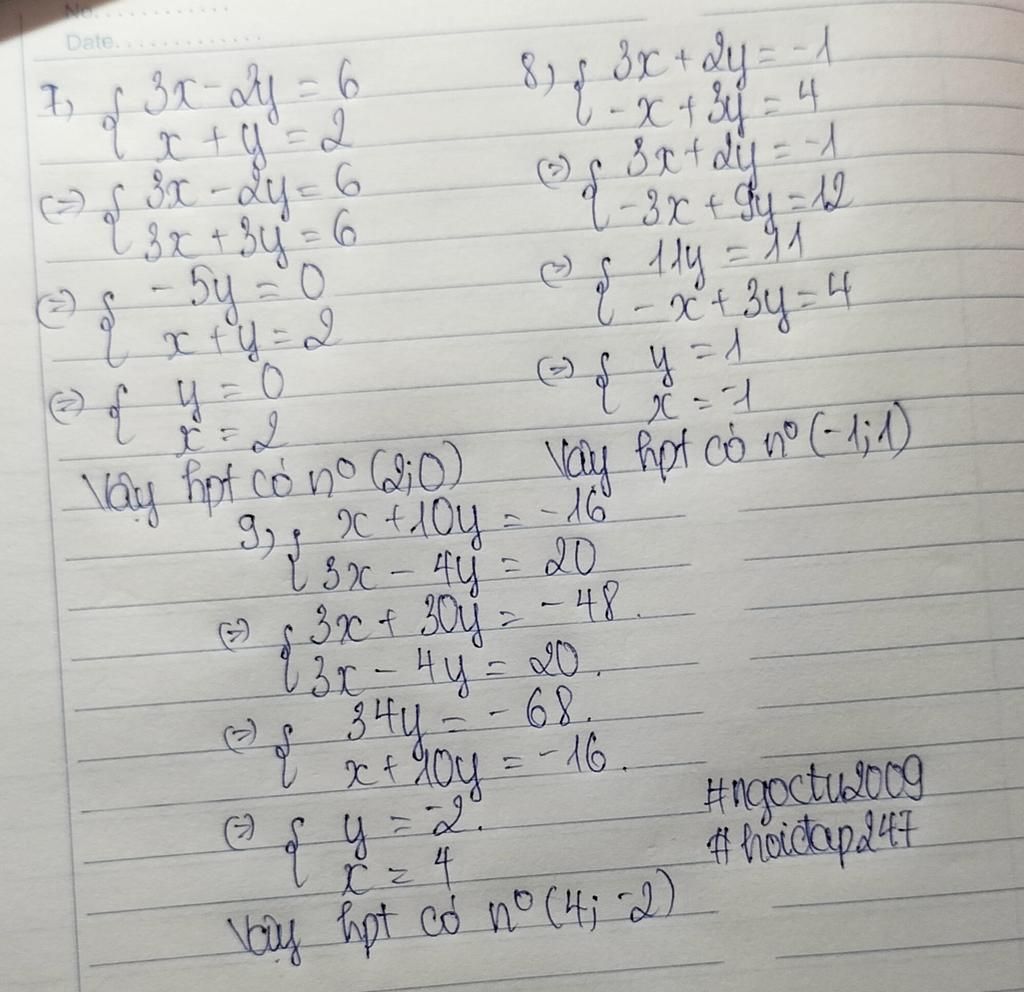 No.............
Date.............
7, { 3x - 2y = 6
x + y = 2
(=) { 3x - 2y = 6
3x + 3y = 6
(=) { - 5y = 0
x + y = 2
(=) { y = 0
x = 2
Vậy hpt có nº (2;0)
8, { 3x + 2y = -1
- x + 3y = 4
(=) { 3x + 2y = -1
- 3x + 9y = 12
(=) { 11y = 11
- x + 3y = 4
(=) { y = 1
x = -1
Vậy hpt có nº (-1;1)
9, { x + 10y = -16
3x - 4y = 20
(=) { 3x + 30y = - 48.
3x - 4y = 20.
(=) { 34y = - 68.
x + 10y = -16.
(=) { y = -2.
x = 4
Vậy hpt có nº (4; -2)
#ngoctu2009
#hoidap247